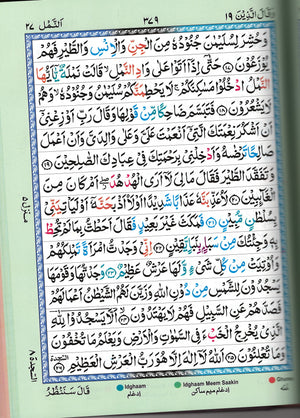 وَقَالَ الَّذِيْنَ ١٩ ٣٧٩ اَلنَّمْل ٢٧
وَحُشِرَ لِسُلَيْمٰنَ جُنُوْدُهٗ مِنَ الْجِنِّ وَالْاِنْسِ وَالطَّيْرِ فَهُمْ
يُوْزَعُوْنَ ﴿١٧﴾ حَتّٰۤى اِذَاۤ اَتَوْا عَلٰى وَادِ النَّمْلِ ۙ قَالَتْ نَمْلَةٌ يّٰۤاَيُّهَا
النَّمْلُ ادْخُلُوْا مَسٰكِنَكُمْ ۚ لَا يَحْطِمَنَّكُمْ سُلَيْمٰنُ وَجُنُوْدُهٗ ۙ وَهُمْ
لَا يَشْعُرُوْنَ ﴿١٨﴾ فَتَبَسَّمَ ضَاحِكًا مِّنْ قَوْلِهَا وَقَالَ رَبِّ اَوْزِعْنِيْۤ اَنْ
اَشْكُرَ نِعْمَتَكَ الَّتِيْۤ اَنْعَمْتَ عَلَيَّ وَعَلٰى وَالِدَيَّ وَاَنْ اَعْمَلَ
صَالِحًا تَرْضٰىهُ وَاَدْخِلْنِيْ بِرَحْمَتِكَ فِيْ عِبَادِكَ الصّٰلِحِيْنَ ﴿١٩﴾
وَتَفَقَّدَ الطَّيْرَ فَقَالَ مَا لِيَ لَاۤ اَرَى الْهُدْهُدَ ۖ اَمْ كَانَ مِنَ
الْغَآئِبِيْنَ ﴿٢٠﴾ لَاُعَذِّبَنَّهٗ عَذَابًا شَدِيْدًا اَوْ لَاۡاَذْبَحَنَّهٗۤ اَوْ لَيَاْتِيَنِّيْ
بِسُلْطٰنٍ مُّبِيْنٍ ﴿٢١﴾ فَمَكَثَ غَيْرَ بَعِيْدٍ فَقَالَ اَحَطْتُّ بِمَا لَمْ تُحِطْ
بِهٖ وَجِئْتُكَ مِنْ سَبَاٍۭ بِنَبَاٍ يَّقِيْنٍ ﴿٢٢﴾ اِنِّيْ وَجَدْتُّ امْرَاَةً تَمْلِكُهُمْ
وَاُوْتِيَتْ مِنْ كُلِّ شَيْءٍ وَّلَهَا عَرْشٌ عَظِيْمٌ ﴿٢٣﴾ وَجَدْتُّهَا وَقَوْمَهَا
يَسْجُدُوْنَ لِلشَّمْسِ مِنْ دُوْنِ اللّٰهِ وَزَيَّنَ لَهُمُ الشَّيْطٰنُ اَعْمَالَهُمْ
فَصَدَّهُمْ عَنِ السَّبِيْلِ فَهُمْ لَا يَهْتَدُوْنَ ﴿٢٤﴾ اَلَّا يَسْجُدُوْا لِلّٰهِ
الَّذِيْ يُخْرِجُ الْخَبْءَ فِي السَّمٰوٰتِ وَالْاَرْضِ وَيَعْلَمُ مَا تُخْفُوْنَ
وَمَا تُعْلِنُوْنَ ﴿٢٥﴾ اَللّٰهُ لَاۤ اِلٰهَ اِلَّا هُوَ رَبُّ الْعَرْشِ الْعَظِيْمِ ﴿٢٦﴾
منزل ٥
السجدة ٨
السجدة
قَالَ سَنَنْظُرُ
Idghaam ادغام
Idghaam Meem Saakin ادغام میم ساکن